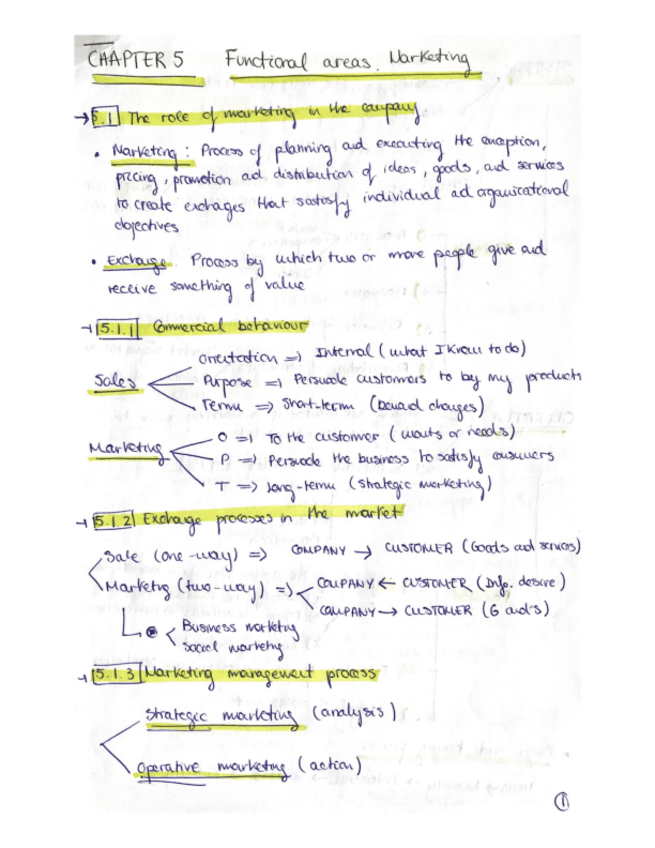 CHAPTER 5 Functional areas. Marketing
→ 5.1 The role of marketing in the company
• Marketing: Process of planning and executing the conception,
pricing, promotion and distribution of ideas, goods, and services
to create exchanges that satisfy individual and organizational
objectives
• Exchange. Process by which two or more people give and
receive something of value
→ 5.1.1 Commercial behaviour
orientation => Internal (what I know to do)
Sales Purpose => Persuade customers to by my products
Term => Short-term (Demand changes)
O => To the customer (wants or needs)
Marketing P => Persuade the business to satisfy customers
T => long-term (strategic marketing)
→ 5.1.2 Exchange processes in the market
Sale (one-way) => COMPANY → CUSTOMER (Goods and services)
Marketing (two-way) => COMPANY ← CUSTOMER (Info. desire)
COMPANY → CUSTOMER (G and S)
Business marketing
social marketing
→ 5.1.3 Marketing management process
Strategic marketing (analysis)
Operative marketing (action)
1